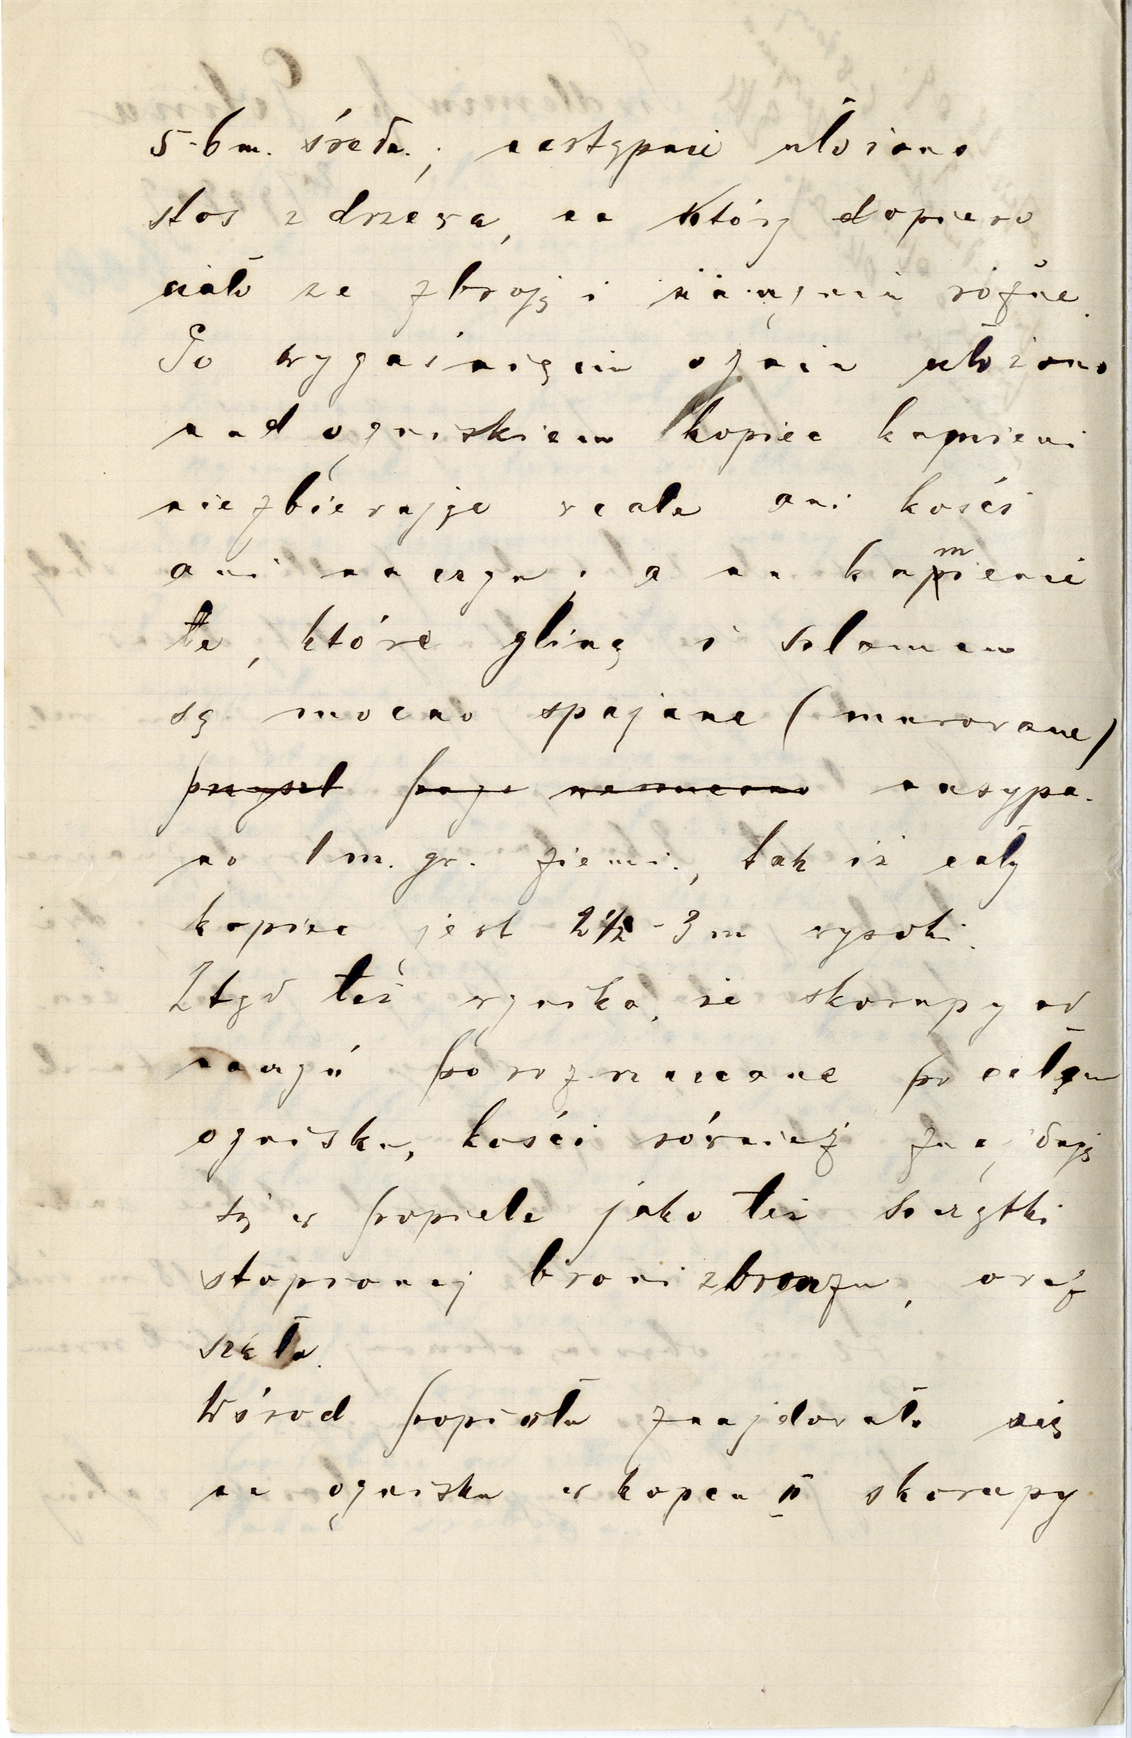 5-6 m. średn.; następnie ułożono
stos z drzewa, na który dopiero
ciało ze zbroją i naczynia różne.
Po wygaśnięciu ognia ułożono
nad ogniskiem kopiec kamieni
niezbierając wcale ani kości
ani naczyń; a na kamienie
te, które gliną i szlamem
są mocno spajane (murowane)
nasypa-
no 1 m. gr. ziemi, tak iż cały
kopiec jest 2 1/2 - 3 m wysoki.
Ztąd też wynika, że skorupy od
naczyń porozrzucane po całem
ognisku, kości również znajdują
się w popiele jako też szczątki
stopionej broni z bronzu, oraz
szkła.
Wśrod popiołu znajdowało się
na ognisku w kopcu II skorupy